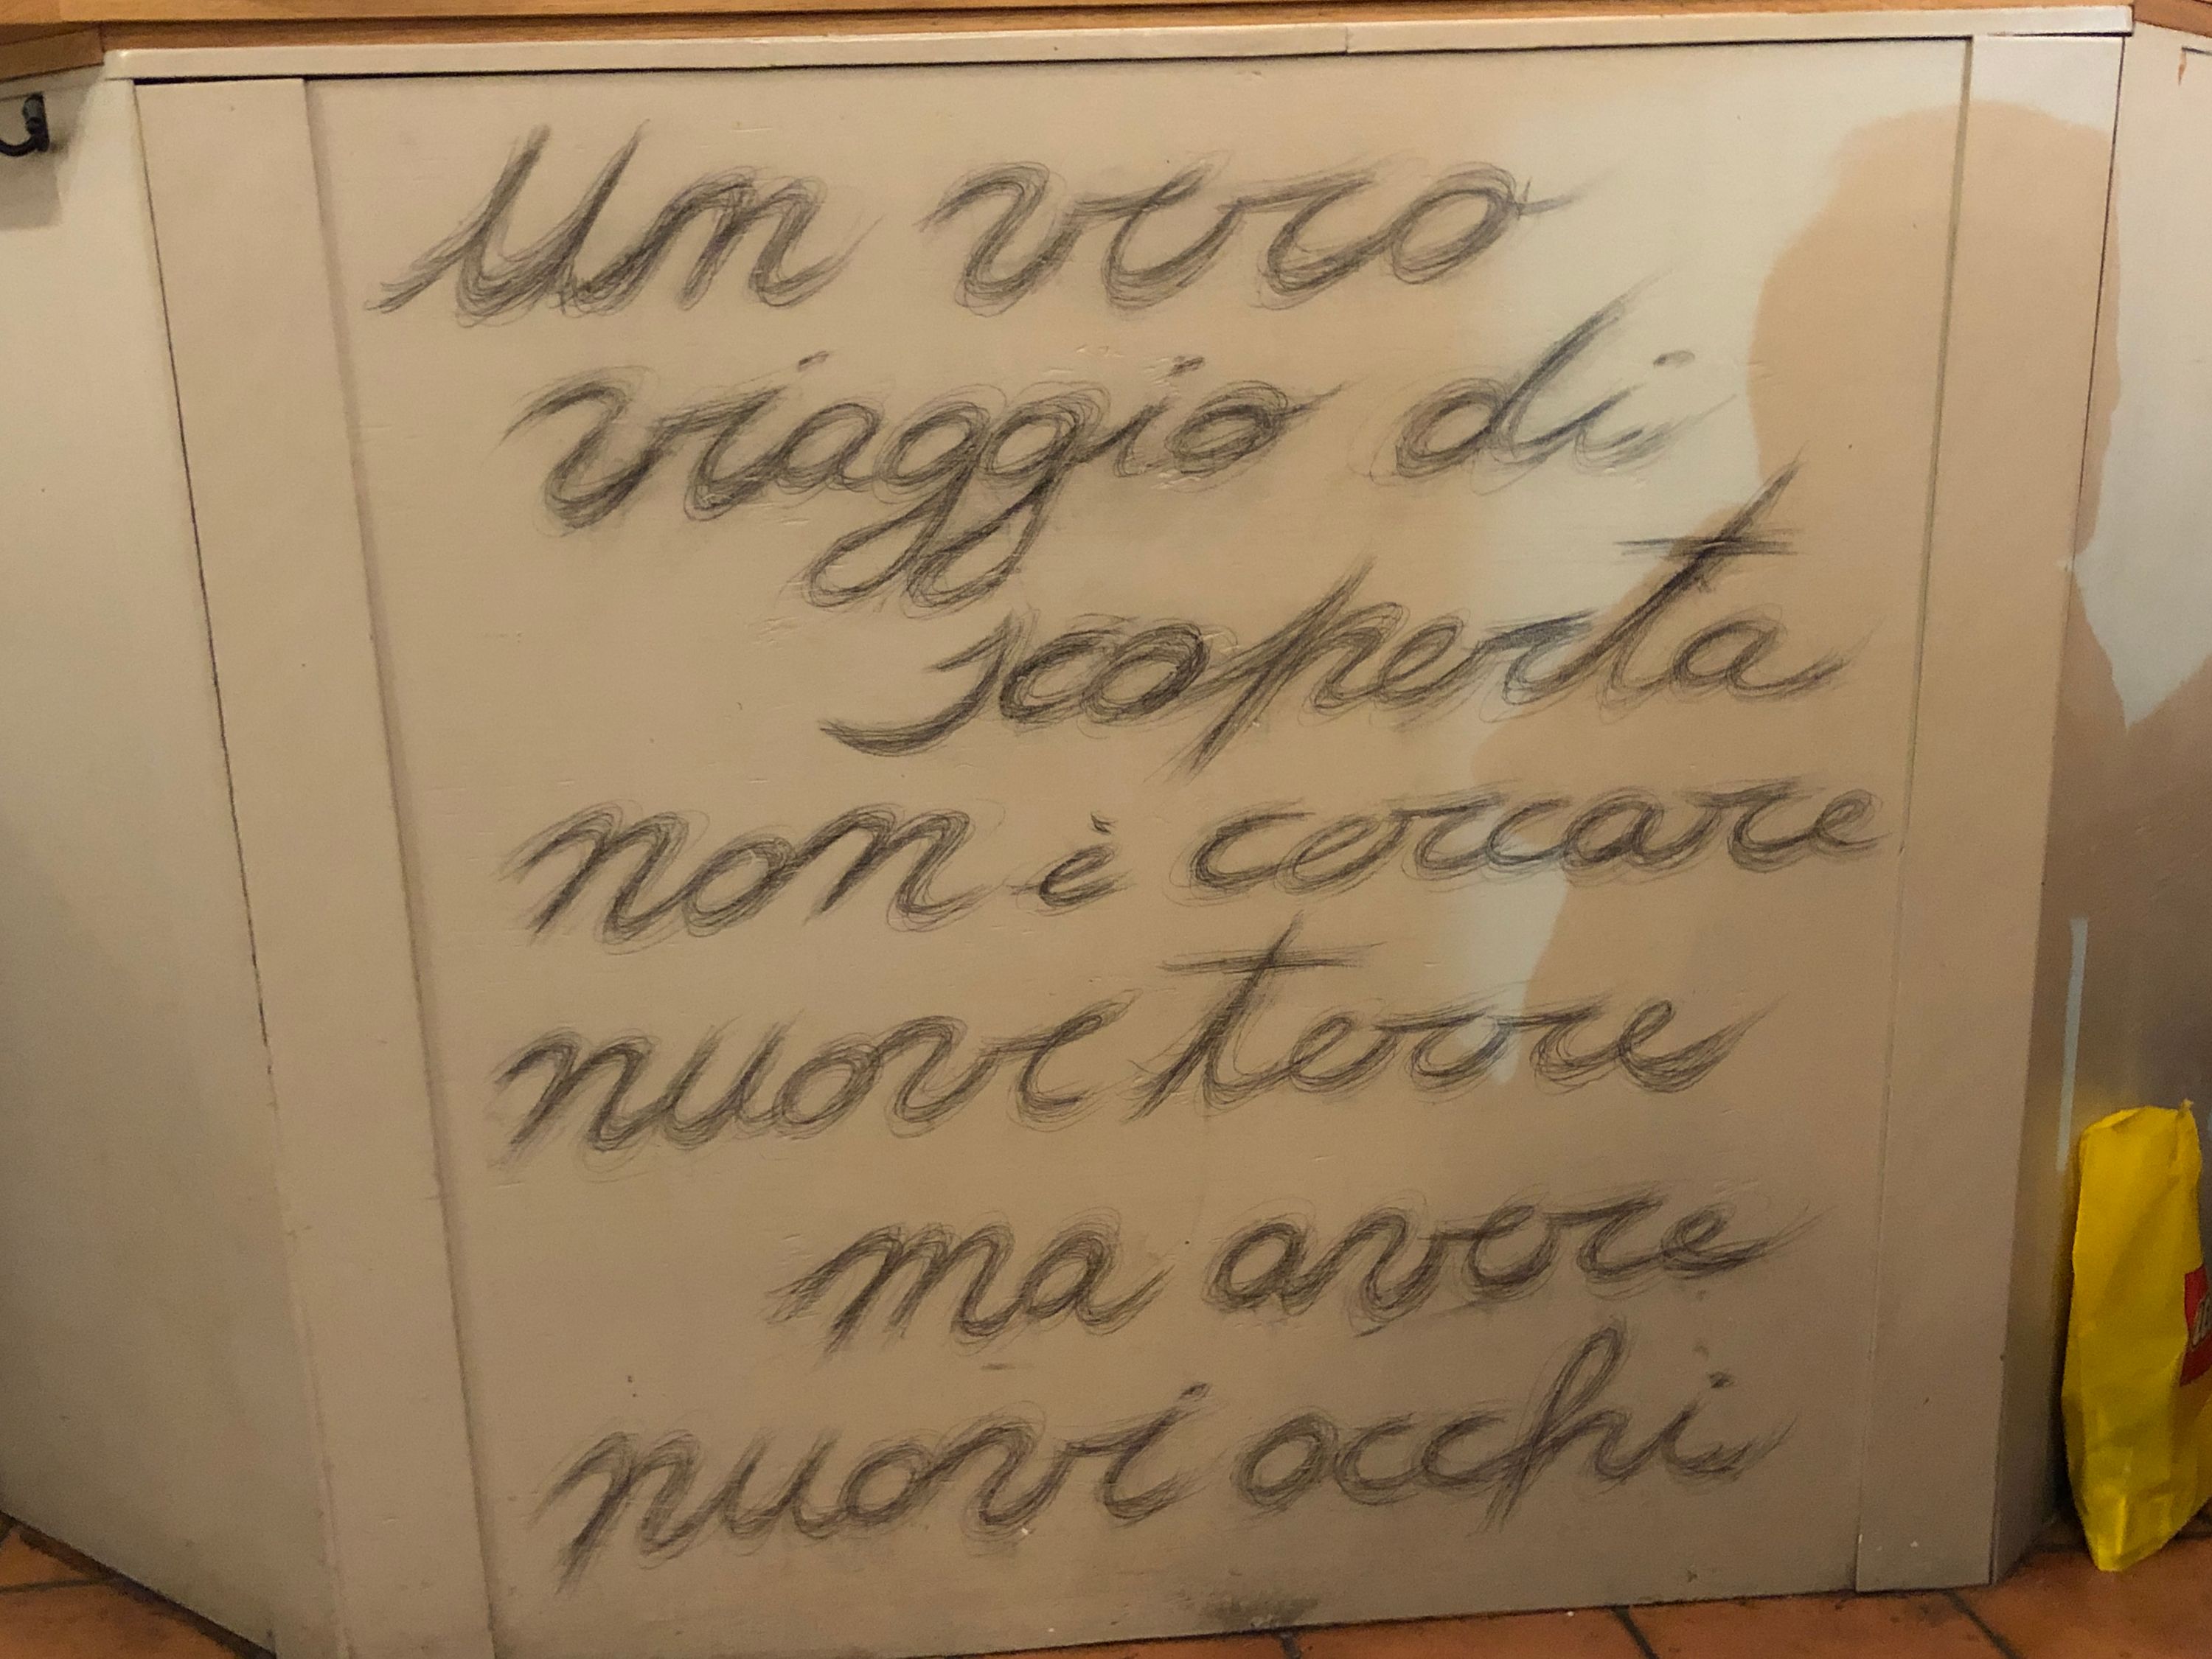 Un vero
viaggio di
scoperta
non è cercare
nuove terre
ma avere
nuovi occhi